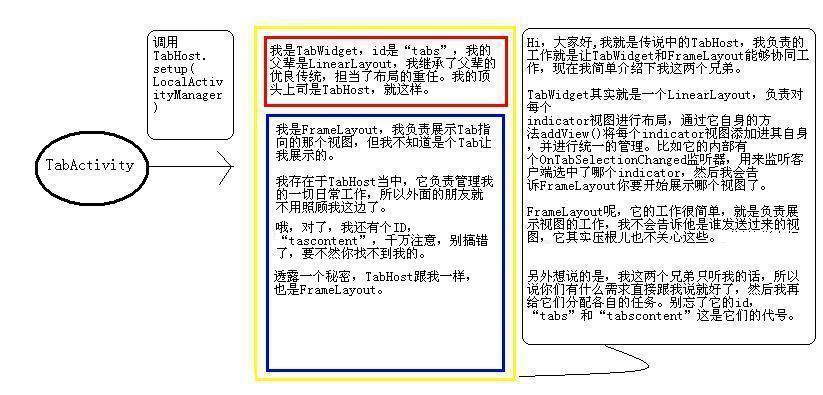 调用
TabHost.
setup(
LocalActiv
ityManager
)
TabActivity
我是TabWidget，id是“tabs”，我的
父辈是LinearLayout，我继承了父辈的
优良传统，担当了布局的重任。我的顶
头上司是TabHost，就这样。
我是FrameLayout，我负责展示Tab指
向的那个视图，但我不知道是个Tab让
我展示的。
我存在于TabHost当中，它负责管理我
的一切日常工作，所以外面的朋友就
不用照顾我这边了。
哦，对了，我还有个ID，
“tascontent”，千万注意，别搞错
了，要不然你找不到我的。
透露一个秘密，TabHost跟我一样，
也是FrameLayout。
Hi，大家好,我就是传说中的TabHost，我负责的
工作就是让TabWidget和FrameLayout能够协同工
作，现在我简单介绍下我这两个兄弟。
TabWidget其实就是一个LinearLayout，负责对
每个
indicator视图进行布局，通过它自身的方
法addView()将每个indicator视图添加进其自身
，并进行统一的管理。比如它的内部有
个OnTabSelectionChanged监听器，用来监听客
户端选中了哪个indicator，然后我会告
诉FrameLayout你要开始展示哪个视图了。
FrameLayout呢，它的工作很简单，就是负责展
示视图的工作，我不会告诉他是谁发送过来的视
图，它其实压根儿也不关心这些。
另外想说的是，我这两个兄弟只听我的话，所以
说你们有什么需求直接跟我说就好了，然后我再
给它们分配各自的任务。别忘了它的id，
“tabs”和“tabscontent”这是它们的代号。